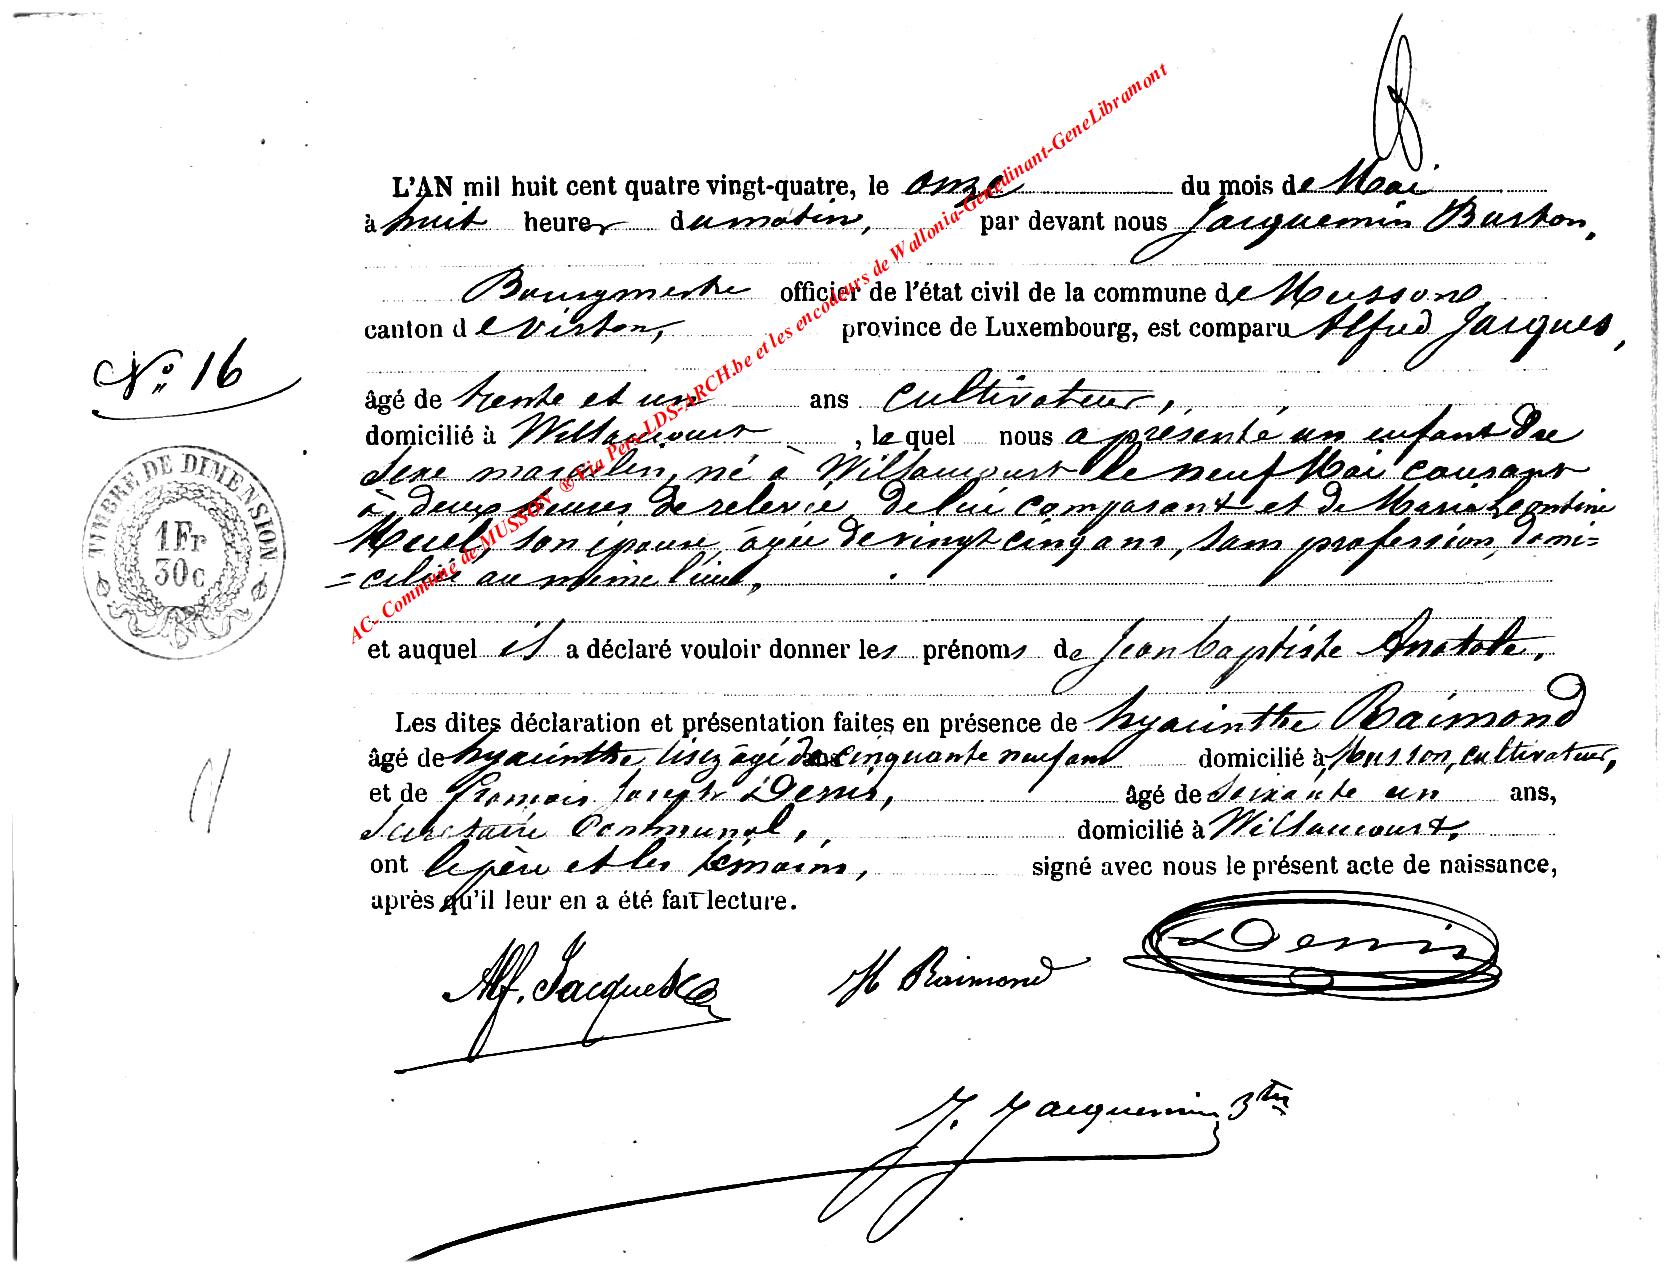 L'AN mil huit cent quatre vingt-quatre, le onze du mois de Mai
à huit heures du matin, par devant nous Jacquemin Burton,
Bourgmestre officier de l'état civil de la commune de Musson,
canton de Virton, province de Luxembourg, est comparu Alfred Jacques,
No. 16
âgé de trente et un ans cultivateur,
domicilié à Willancourt, lequel nous a présenté un enfant du
sexe masculin, né à Willancourt le neuf Mai courant
à deux heures de relevée, de lui comparant et de Maria Leontine
son épouse, âgée de vingt cinq ans, sans profession, domi=
=ciliée au même lieu,
et auquel il a déclaré vouloir donner les prénoms de Jean baptiste Anatole.
Les dites déclaration et présentation faites en présence de hyacinthe Raimond
âgé de hyacinthe lisez âgé de cinquante neuf ans domicilié à Musson, cultivateur,
et de François Joseph Denis, âgé de Soixante un ans,
Secrétaire Communal, domicilié à Willancourt.
ont le père et les témoins, signé avec nous le présent acte de naissance,
après qu'il leur en a été fait lecture.
Alf. Jacques H Raimond Denis
J. Jacquemin Btn
TIMBRE DE DIMENSION
1 Fr
30 c
AC- Commune de MUSSON ® Via Pers-LDS-ARCH.be et les encodeurs de Wallonia-Genedinant-GeneLibramont